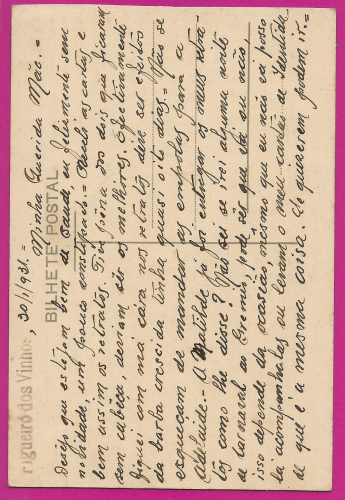 Figueiró dos Vinhos, 30/1/931.=
BILHETE POSTAL
Minha Querida Mãe.=
Desejo que estejam bem de saude, eu felizmente sem
novidade, um pouco constipado.= Recebi as cartas e
bem assim os retratos. Tive pena dos dois que ficaram
sem cabeça, deviam ser os melhores. Efectivamente
fiquei com má cara nos retratos, deve ser efeitos
da barba crescida tinha quasi oito dias.= Não se
esqueçam de mandar as empolas para a
Adelaide.= A Matilde já foi entregar os meus retra-
tos como lhe disse? Não sei se irei alguma noite
de carnaval ao Gremio, pode ser que vá ou não,
isso depende da ocasião, mesmo que eu não vá posso
lá ir levam o meu cartão de Identida
de que é a mesma coisa. Se quizerem podem ir.=